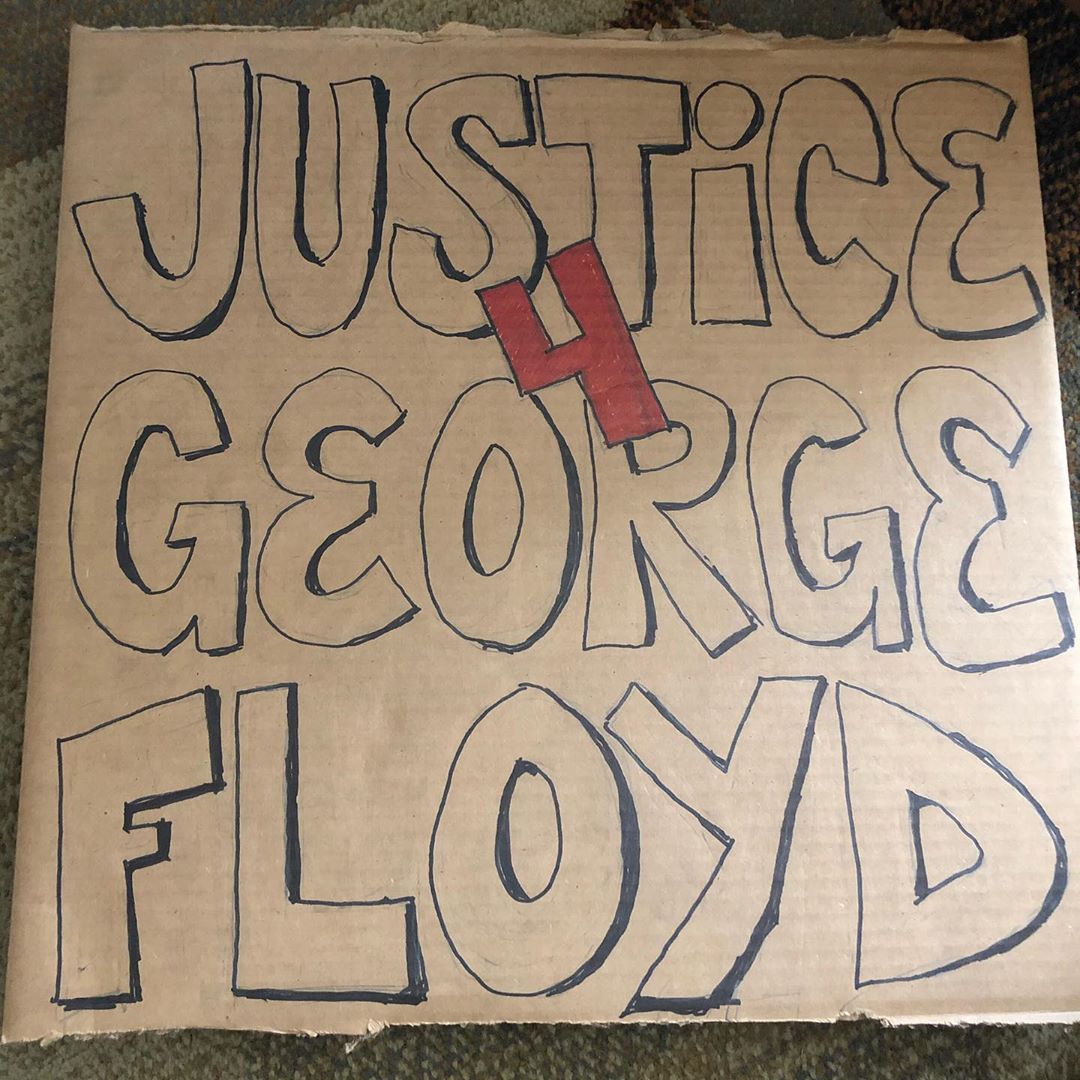 JUSTiCE
4
GEORGE
FLOYD